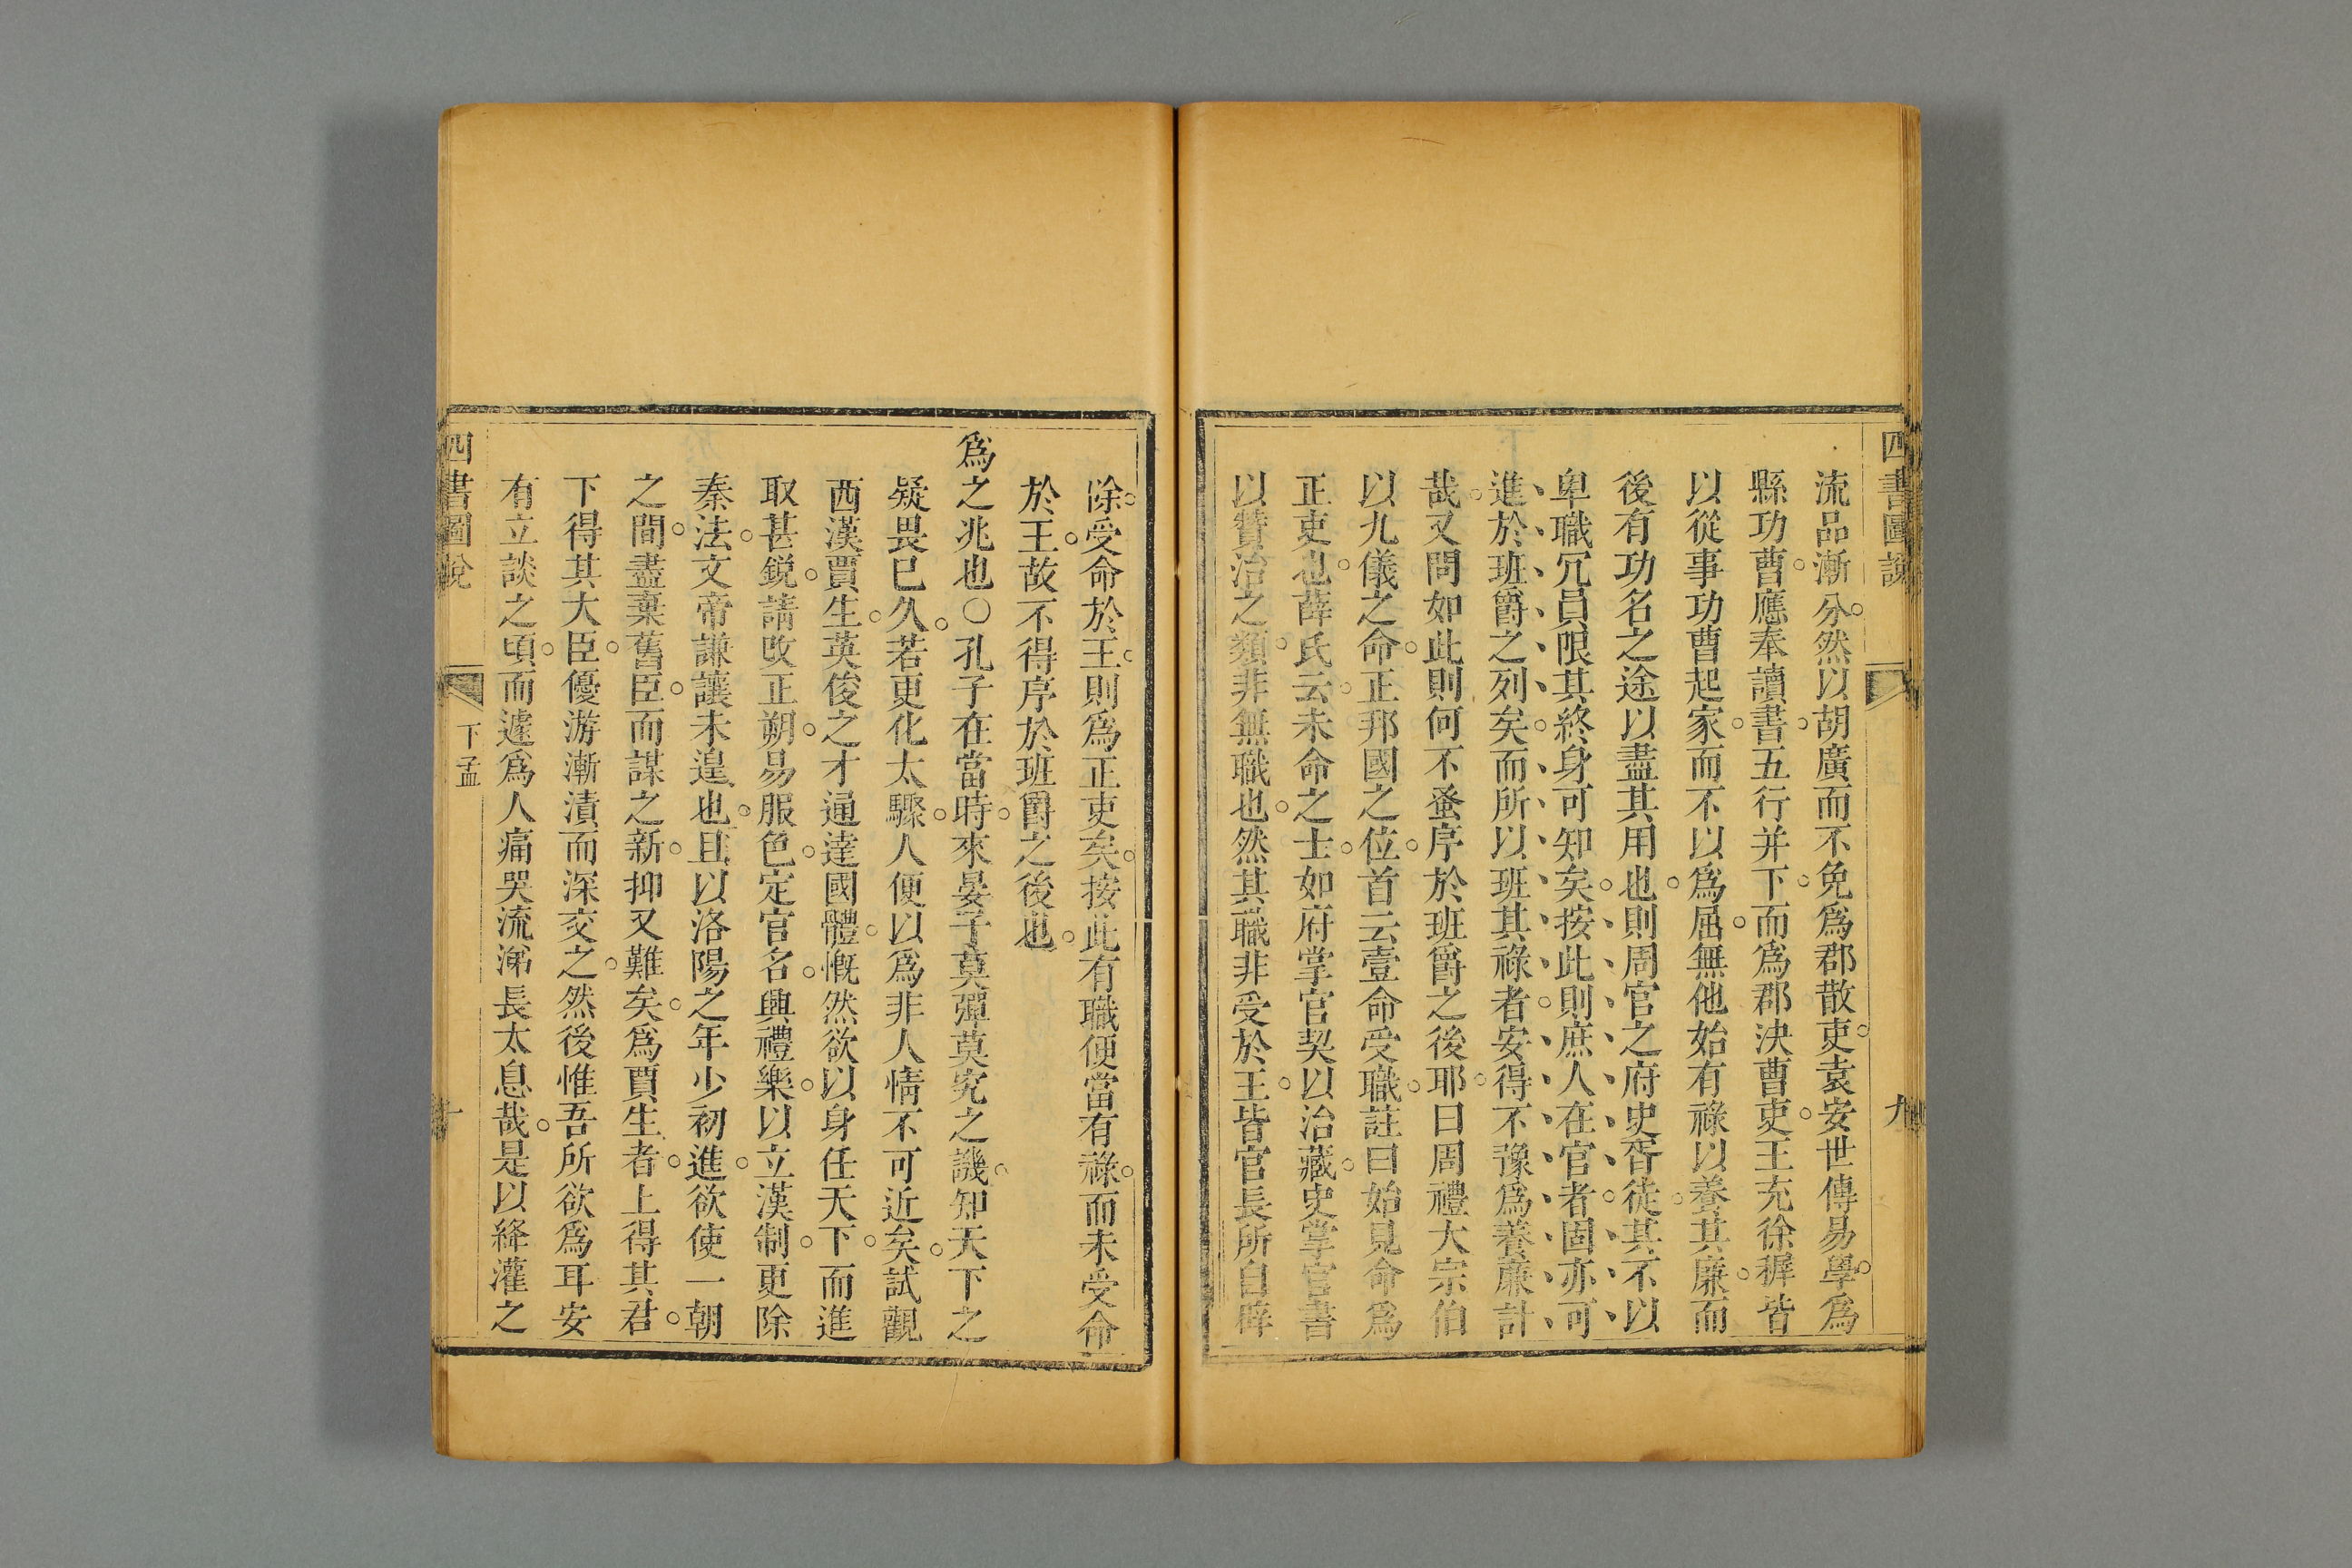 四書圖說
九
流品漸分然以胡廣而不免爲郡散吏袁安世傳易學爲
縣功曹應奉讀書五行并下而爲郡決曹吏王充徐穉皆
以從事功曹起家而不以爲屈無他始有祿以養其廉而
後有功名之途以盡其用也則周官之府史胥徒其不以
卑職冗員限其終身可知矣按此則庶人在官者固亦可
進於班爵之列矣而所以班其祿者安得不豫爲養廉計
哉又問如此則何不蚤序於班爵之後耶曰周禮大宗伯
以九儀之命正邦國之位首云壹命受職註曰始見命爲
正吏也薛氏云未命之士如府掌官契以治藏史掌官書
以贊治之類非無職也然其職非受於王皆官長所自辟
除受命於王則爲正吏矣按此有職便當有祿而未受命
於王故不得序於班爵之後也
爲之兆也○孔子在當時來晏子莫殫莫究之譏知天下之
疑畏已久若更化太驟人便以爲非人情不可近矣試觀
西漢賈生英俊之才通達國體慨然欲以身任天下而進
取甚銳請改正朔易服色定官名興禮樂以立漢制更除
秦法文帝謙讓未遑也且以洛陽之年少初進欲使一朝
之間盡棄舊臣而謀之新抑又難矣爲賈生者上得其君
下得其大臣優游漸漬而深交之然後惟吾所欲爲耳安
有立談之頃而遽爲人痛哭流涕長太息哉是以絳灌之
四書圖說
下孟
十